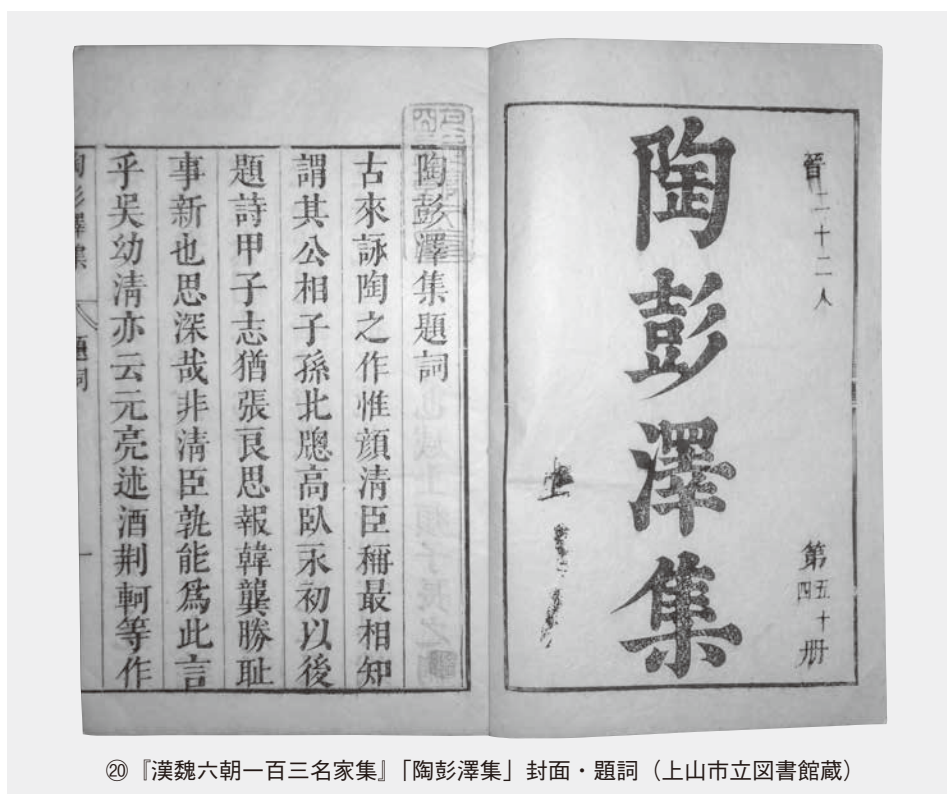 晉二十二人
第五十四册
陶彭澤集
陶彭澤集題詞
古來詠陶之作惟顔淸臣稱最相知
謂其公相子孫北牎高臥永初以後
題詩甲子志猶張良思報韓龔勝恥
事新也思深哉非淸臣孰能爲此言
乎吳幼淸亦云元亮述酒荆軻等作
陶彭澤集 題詞 一
⑳『漢魏六朝一百三名家集』「陶彭澤集」封面・題詞（上山市立図書館蔵）